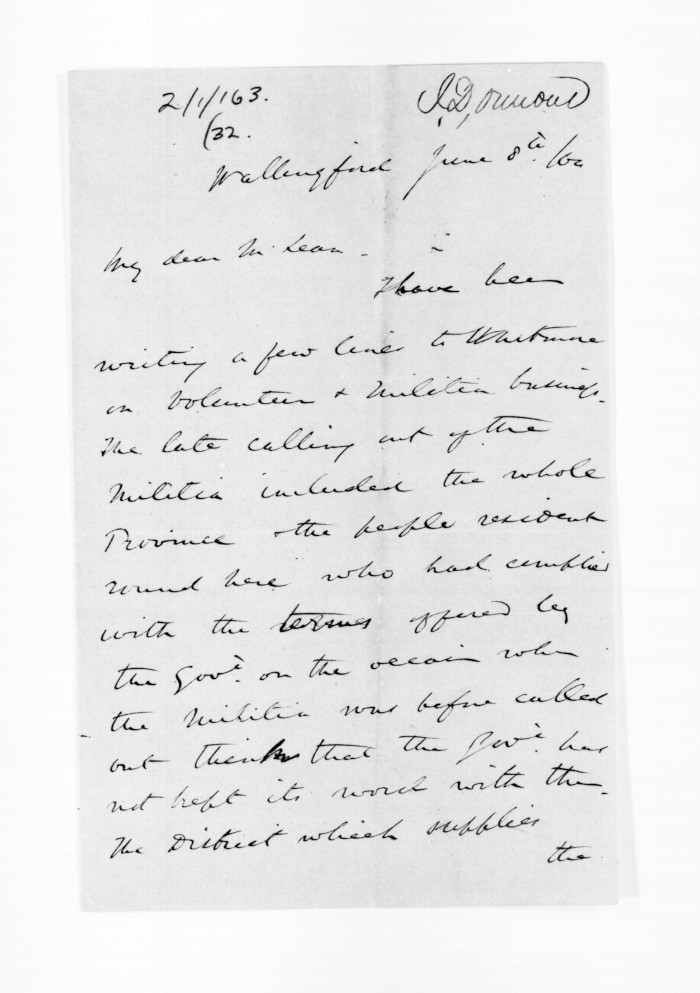 2/1/163.
J. D. Ormond
/32.
Wallingford June 8th /60
My dear McLean -
I have been
writing a few lines to Whitmore
on Volunteer & Militia business.
The late calling out of the
Militia included the whole
Province & the people resident
round here who had complied
with the terms offered by
the Govt. on the occasion when
the Militia was before called
out think that the Govt. has
not kept its word with them.
The District which supplies
the